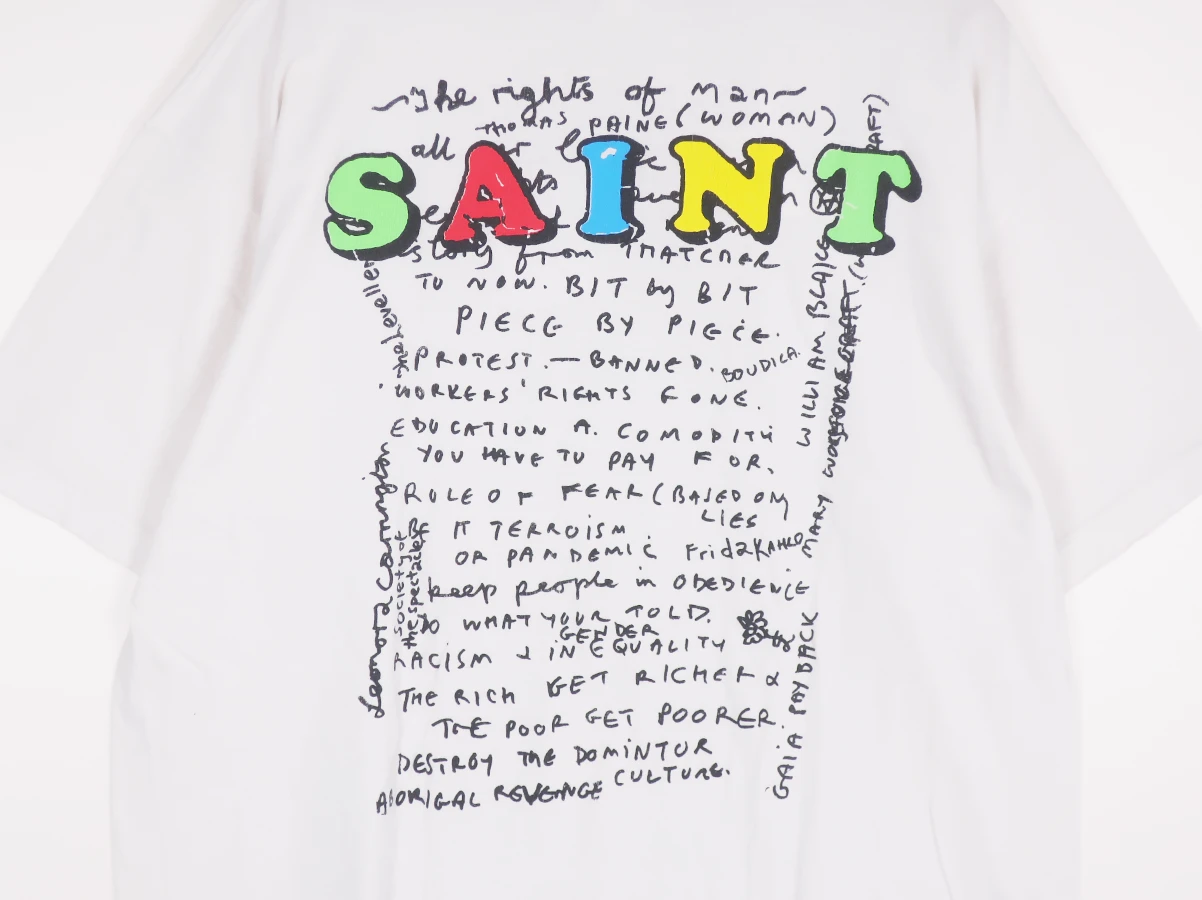 The rights of man
THOMAS PAINE (WOMAN)
all
SAINT
story from THATCHER
TO NOW. BIT by BIT
PIECE BY PIECE.
PROTEST. — BANNED. BOUDICA.
WORKERS' RIGHTS GONE.
EDUCATION A. COMODITY
YOU HAVE TO PAY FOR,
RULE OF FEAR (BASED ON
LIES
BE IT TERROISM.
OR PANDEMIC Frida KAHLO
keep people in OBEDIENCE
DO WHAT YOUR TOLD.
GENDER
RACISM & INEQUALITY
THE RICH GET RICHER &
THE POOR GET POORER.
DESTROY THE DOMINTOR
CULTURE.
ABORIGAL REVENGE
the Levelle
Leonora Carrington
society of
the spectacle
WILLIAM BLAKE
MARY
GAIA PAYBACK